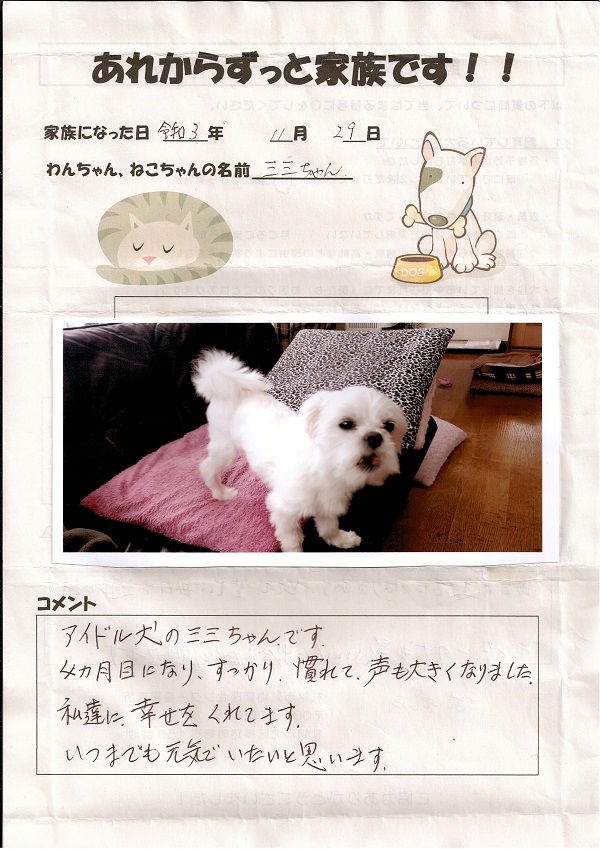 あれからずっと家族です！！
家族になった日 令和3年 11月 29日
わんちゃん、ねこちゃんの名前 ミミちゃん
DOG
コメント
アイドル犬のミミちゃんです.
4カ月目になり、すっかり、慣れて、声も大きくなりました.
私達に、幸せをくれてます.
いつまでも元気でいたいと思います.